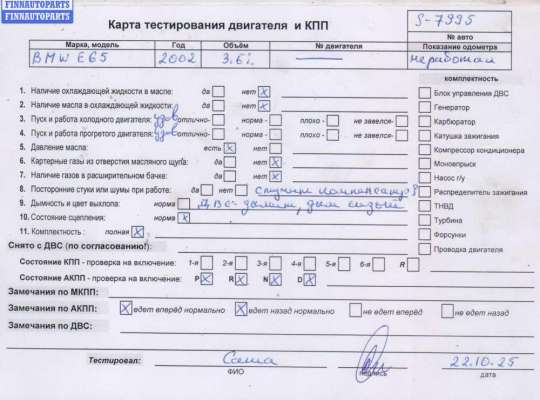 FINNAUTOPARTS
Карта тестирования двигателя и КПП
S-7995
№ авто
Марка, модель Год Объём № двигателя Показание одометра
BMW E65 2002 3.6i неработал
комплектность
1. Наличие охлаждающей жидкости в масле: да нет X
Блок управления ДВС
2. Наличие масла в охлаждающей жидкости: да нет X
Генератор
3. Пуск и работа холодного двигателя: удов отлично- норма - плохо - не завелся-
Карбюратор
4. Пуск и работа прогретого двигателя: удов отлично- норма - плохо - не завелся-
Катушка зажигания
5. Давление масла: есть X нет
Компрессор кондиционера
6. Картерные газы из отверстия масляного щупа: да нет X
Моновпрыск
7. Наличие газов в расширительном бачке: да нет X
Насос г/у
8. Посторонние стуки или шумы при работе: да нет
Распределитель зажигания
9. Дымность и цвет выхлопа: норма ДВС- дымит, дым сизый
ТНВД
10. Состояние сцепления: норма X
Турбина
11. Комплектность : полная X
Форсунки
Проводка двигателя
Снято с ДВС (по согласованию!):
Состояние КПП - проверка на включение: 1-я 2-я 3-я 4-я 5-я 6-я R
Состояние АКПП - проверка на включение: P X R X N X D X
Замечания по МКПП:
Замечания по АКПП: X едет вперёд нормально X едет назад нормально не едет вперёд не едет назад
Замечания по ДВС:
Тестировал: Саша 22.10.25
ФИО подпись дата